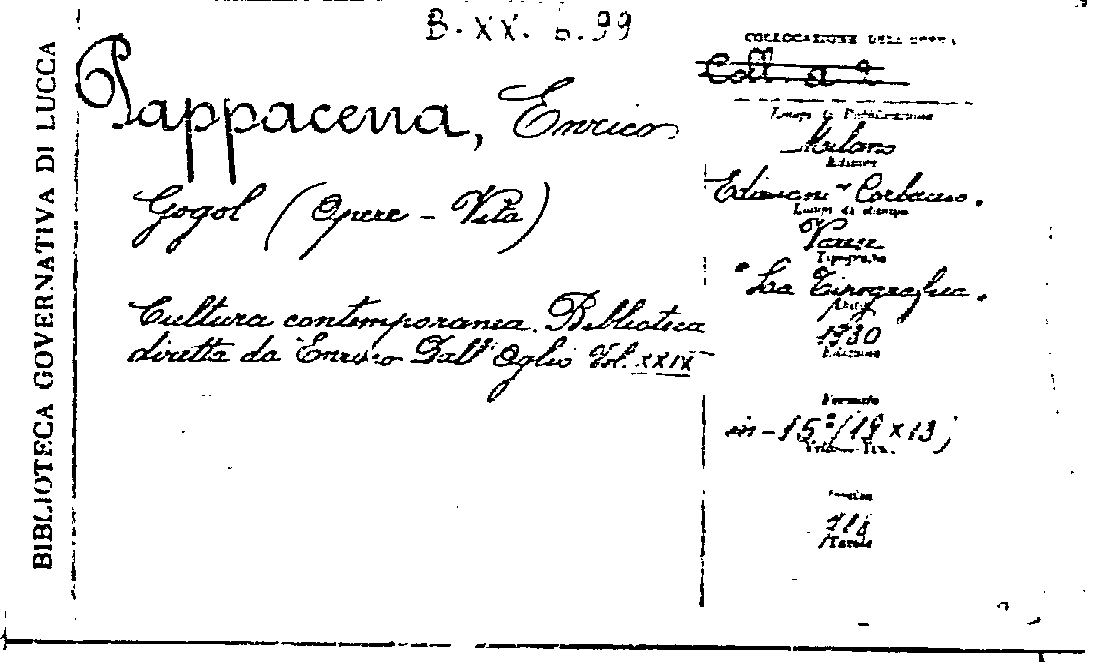 B. XX. 6. 99
BIBLIOTECA GOVERNATIVA DI LUCCA
Pappacena, Enrico
Gogol (Opere - Vita)
Cultura contemporanea. Biblioteca
diretta da Enrico Dall'Oglio Vol. XXIX
COLLOCAZIONE DELL'OPERA
Coll.
Luogo di Pubblicazione
Milano
Editore
Edizioni "Corbaccio.
Luogo di stampa
Varese
Tipografia
"La Tipografica.
1930
Edizione
Formato
in-15º (19 x 13)
Tavole